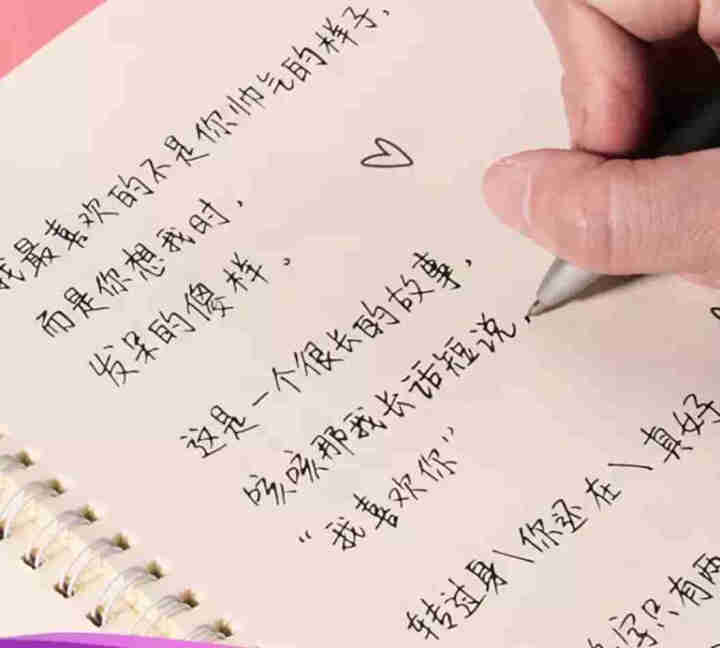 我最喜欢的不是你帅气的样子,
而是你想我时,
发呆的傻样。
这是一个很长的故事,
咳咳那我长话短说,
“我喜欢你”
转过身\你还在\真好
字只有两